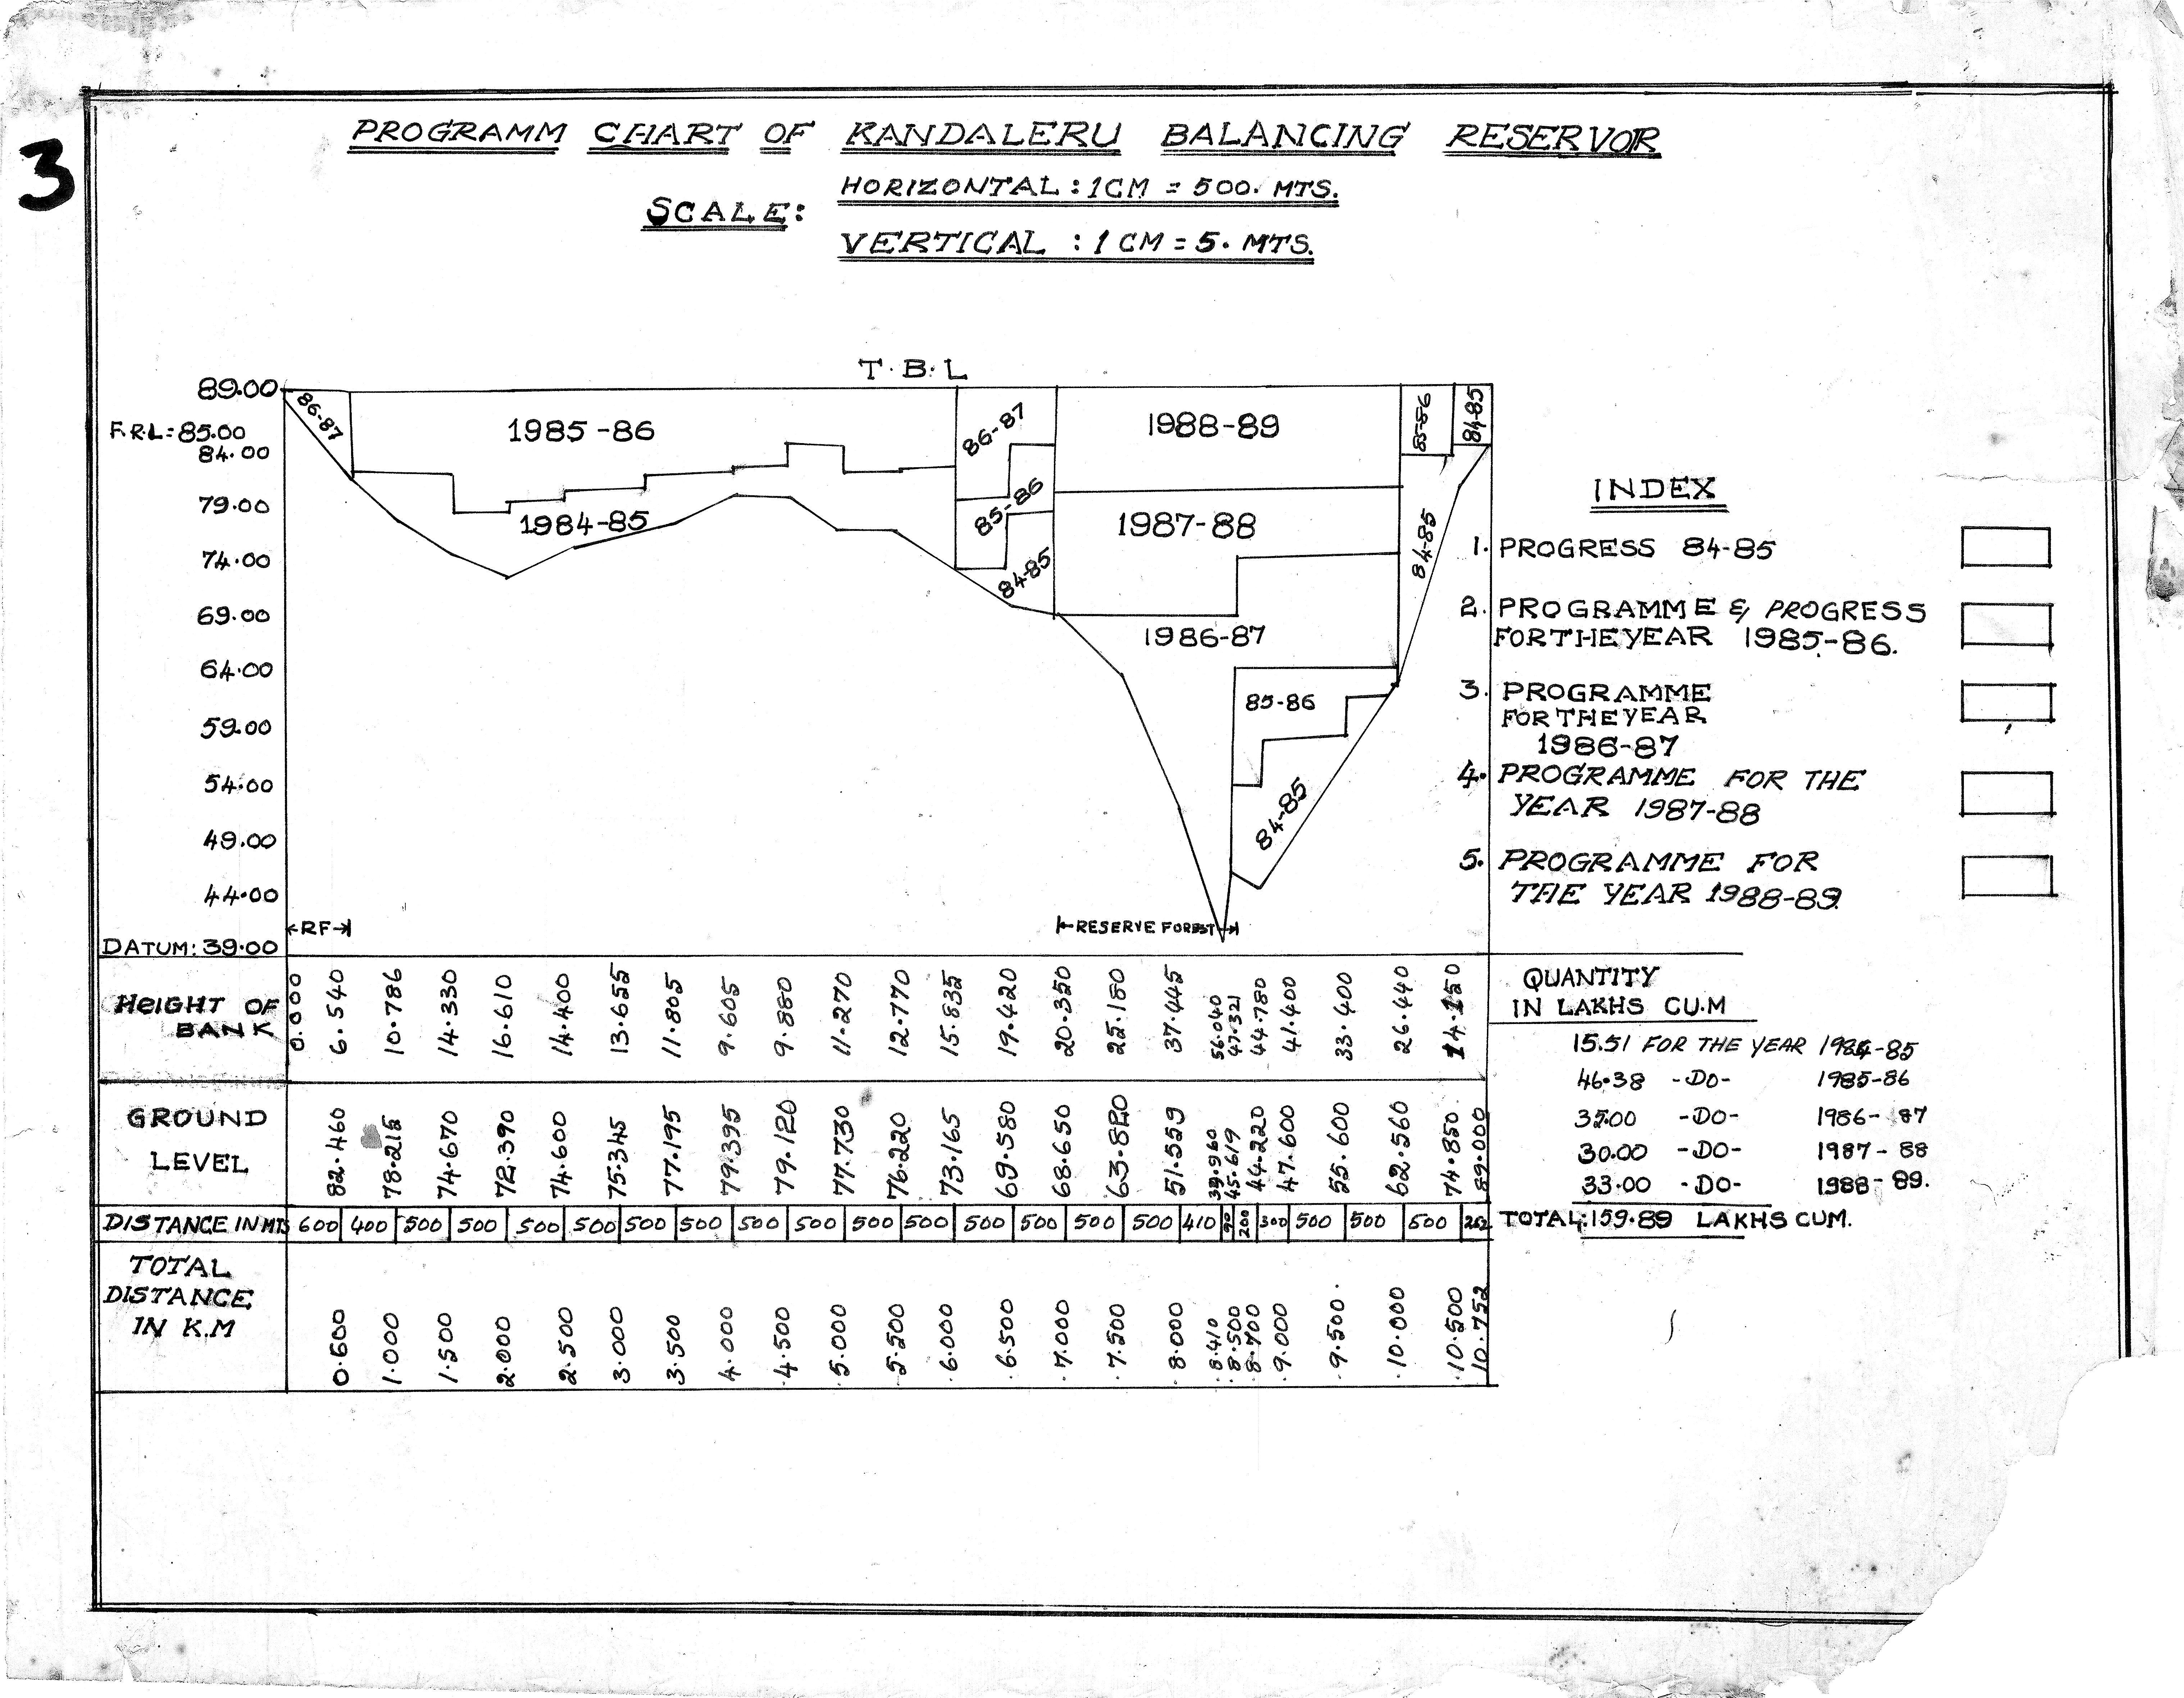 3
PROGRAMM CHART OF KANDALERU BALANCING RESERVOR
SCALE:
HORIZONTAL : 1CM = 500. MTS.
VERTICAL : 1 CM = 5. MTS.
T. B. L
89.00
F.R.L:85.00
84.00
79.00
74.00
69.00
64.00
59.00
54.00
49.00
44.00
DATUM: 39.00
86-87
1985-86
1984-85
86-87
85-86
84-85
1988-89
1987-88
1986-87
85-86
84-85
85-86
84-85
84-85
RF
RESERVE FOREST
INDEX
1. PROGRESS 84-85
2. PROGRAMME & PROGRESS
FOR THE YEAR 1985-86.
3. PROGRAMME
FOR THE YEAR
1986-87
4. PROGRAMME FOR THE
YEAR 1987-88
5. PROGRAMME FOR
THE YEAR 1988-89.
HEIGHT OF BANK 0.000 6.540 10.786 14.330 16.610 14.400 13.655 11.805 9.605 9.880 11.270 12.770 15.835 19.420 20.350 25.180 37.445 56.040 47.321 44.780 41.400 33.400 26.440 14.150
GROUND LEVEL 82.460 78.215 74.670 72.390 74.600 75.345 77.195 79.395 79.120 77.730 76.220 73.165 69.580 68.650 63.820 51.559 39.960 45.619 44.220 47.600 55.600 62.560 74.850 89.000
DISTANCE IN MTS 600 400 500 500 500 500 500 500 500 500 500 500 500 500 500 500 410 90 200 300 500 500 500 252
TOTAL DISTANCE IN K.M 0.600 1.000 1.500 2.000 2.500 3.000 3.500 4.000 4.500 5.000 5.500 6.000 6.500 7.000 7.500 8.000 8.410 8.500 8.700 9.000 9.500 10.000 10.500 10.752
QUANTITY
IN LAKHS CU.M
15.51 FOR THE YEAR 1984-85
46.38 -DO- 1985-86
35.00 -DO- 1986-87
30.00 -DO- 1987-88
33.00 -DO- 1988-89.
TOTAL:159.89 LAKHS CUM.